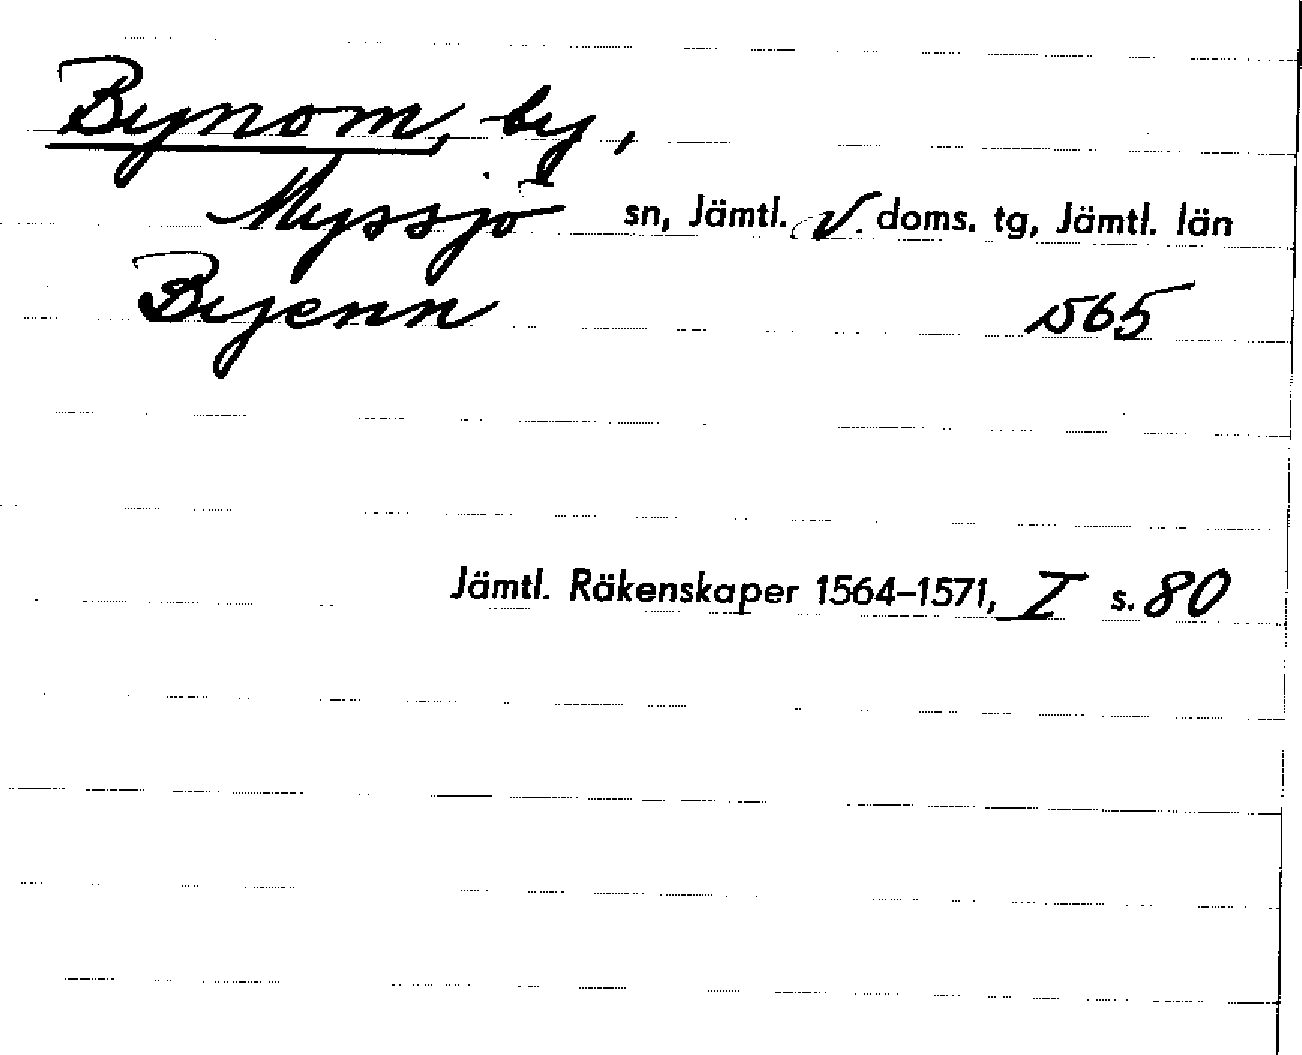 Bynom, by,
Myssjö sn, Jämtl. v. doms. tg, Jämtl. län
Byenn 1565
Jämtl. Räkenskaper 1564–1571, I s. 80